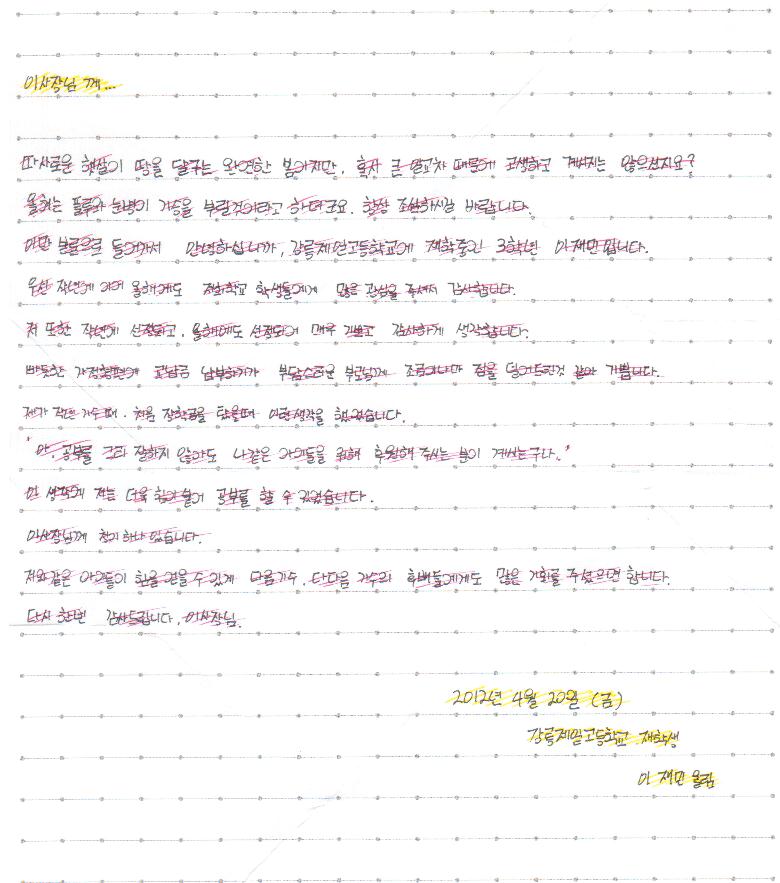 이사장님 께...
따사로운 햇살이 땅을 달구는 완연한 봄이지만, 혹시 큰 일교차 때문에 고생하고 계시지는 않으신지요?
올해는 플루와 눈병이 기승을 부릴것이라고 하더군요. 항상 조심하시길 바랍니다.
이만 본론으로 들어가서 안녕하십니까, 강릉제일고등학교에 재학중인 3학년 이재민입니다.
우선 작년에 이어 올해에도 저희학교 학생들에게 많은 관심을 주셔서 감사합니다.
저 또한 작년에 선정되고, 올해에도 선정되어 매우 기쁘고 감사하게 생각합니다.
빠듯한 가정형편에 교납금 납부하기가 부담스러운 부모님께 조금이나마 짐을 덜어드린것 같아 기쁩니다.
제가 작년 기수때, 처음 장학금을 탔을때 이런생각을 했었습니다.
"아, 공부를 그리 잘하지 않아도 나같은 아이들을 위해 후원해 주시는 분이 계시는구나.."
이 생각에 저는 더욱 힘이 붙어 공부를 할 수 있었습니다.
이사장님께 청이 하나 있습니다.
저와같은 아이들이 힘을 얻을 수 있게 다음기수, 다다음 기수의 후배들에게도 많은 기회를 주셨으면 합니다.
다시 한번 감사드립니다, 이사장님.
2012년 4월 20일 (금)
강릉제일고등학교 재학생
이 재민 올림